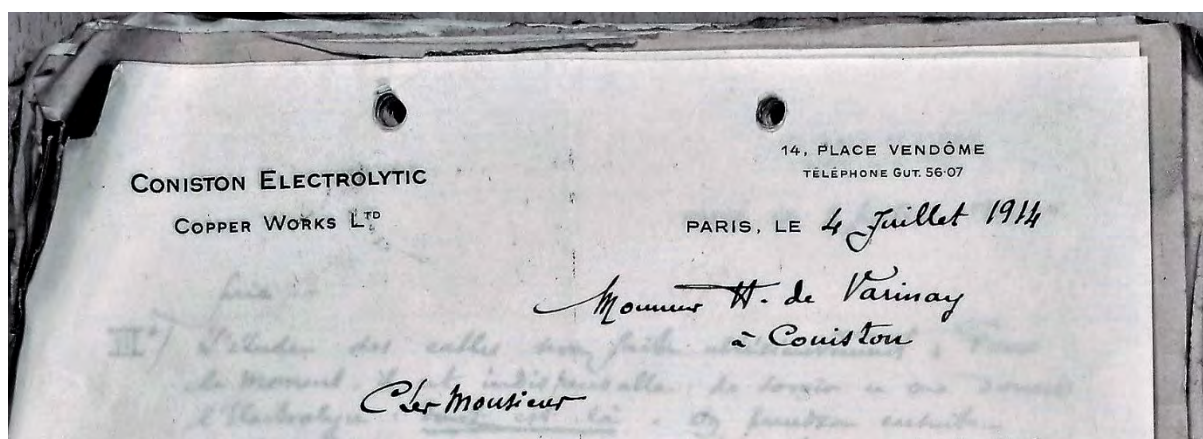 CONISTON ELECTROLYTIC
COPPER WORKS LTD
14, PLACE VENDÔME
TÉLÉPHONE GUT. 56·07
PARIS, LE 4 Juillet 1914
Monsieur H. de Varinay
à Coniston
Cher Monsieur